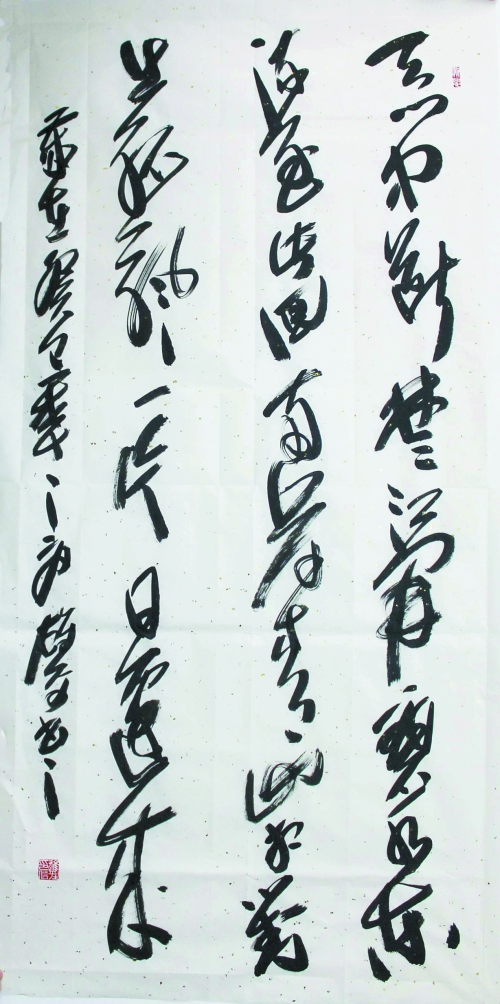 天門中斷楚江開碧水東
流至此回兩岸青山相對
出孤帆一片日邊來
歲在癸巳書之